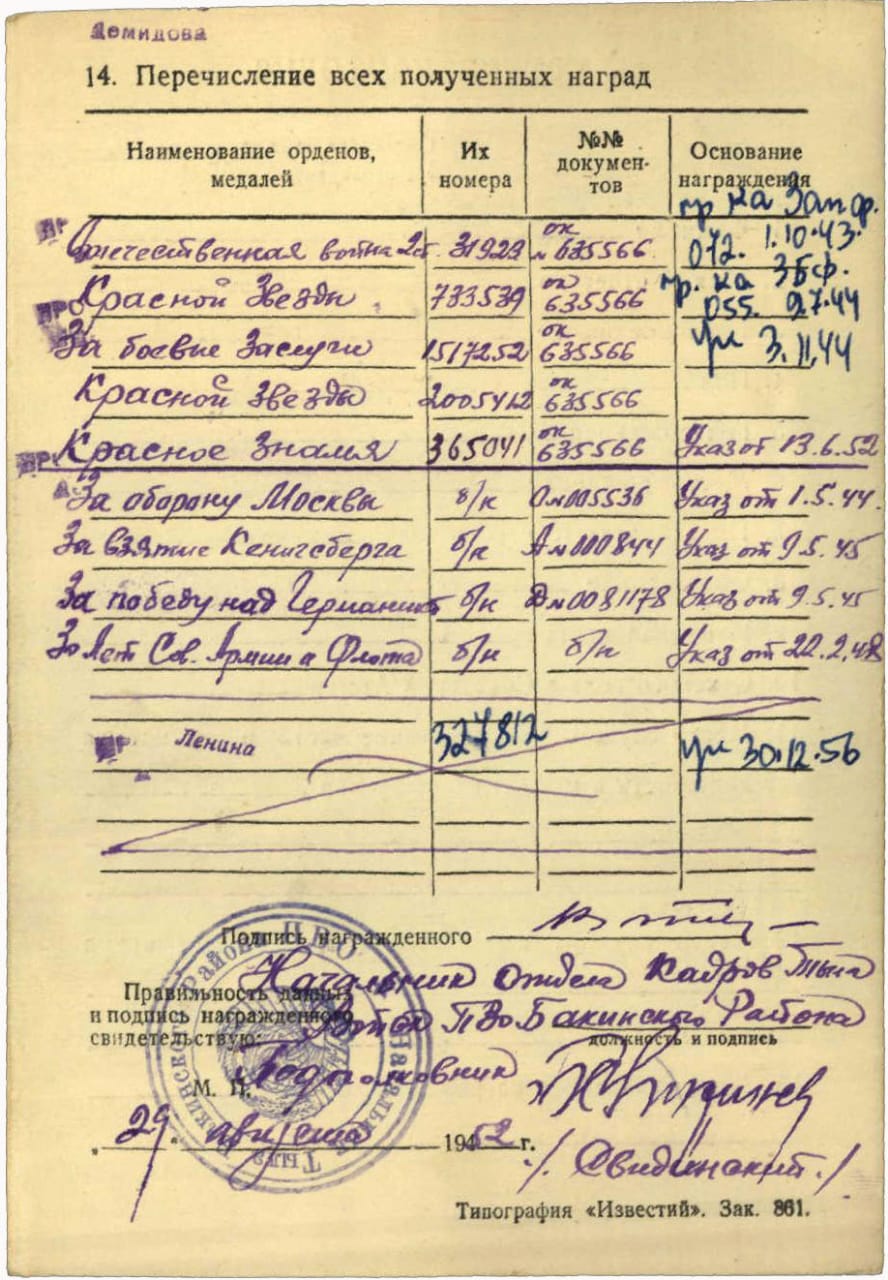 Демидова
14. Перечисление всех полученных наград
Наименование орденов, медалей
Их номера
№№ документов
Основание награждения
пр ка Зап фр.
Отечественная война 2 ст. 31929 ок № 635566 072. 1.10.43.
пр. ка 3 Бф.
Красной Звезды 733539 ок 635566 055. 9.7.44
За боевые Заслуги 1517252 ок 635566 ук 3.11.44
Красной Звезды 2005412 ок 635566
Красное Знамя 365041 ок 635566 Указ от 13.6.52
За оборону Москвы б/н О № 005536 Указ от 1.5.44.
За взятие Кенигсберга б/н А № 000844 Указ от 9.5.45
За победу над Германией б/н Д № 0081178 Указ от 9.5.45
30 лет Сов. Армии и Флота б/н б/н Указ от 22.2.48
Ленина 327812 ук 30.12.56
Подпись награжденного
Начальник отдела Кадров Тыла
Правильность данных
и подпись награжденного
свидетельствую:
Войск ПВО Бакинского Района
должность и подпись
М. П. Подполковник
„29" августа 1952 г.
/. Свидинский. /
Типография «Известий». Зак. 861.